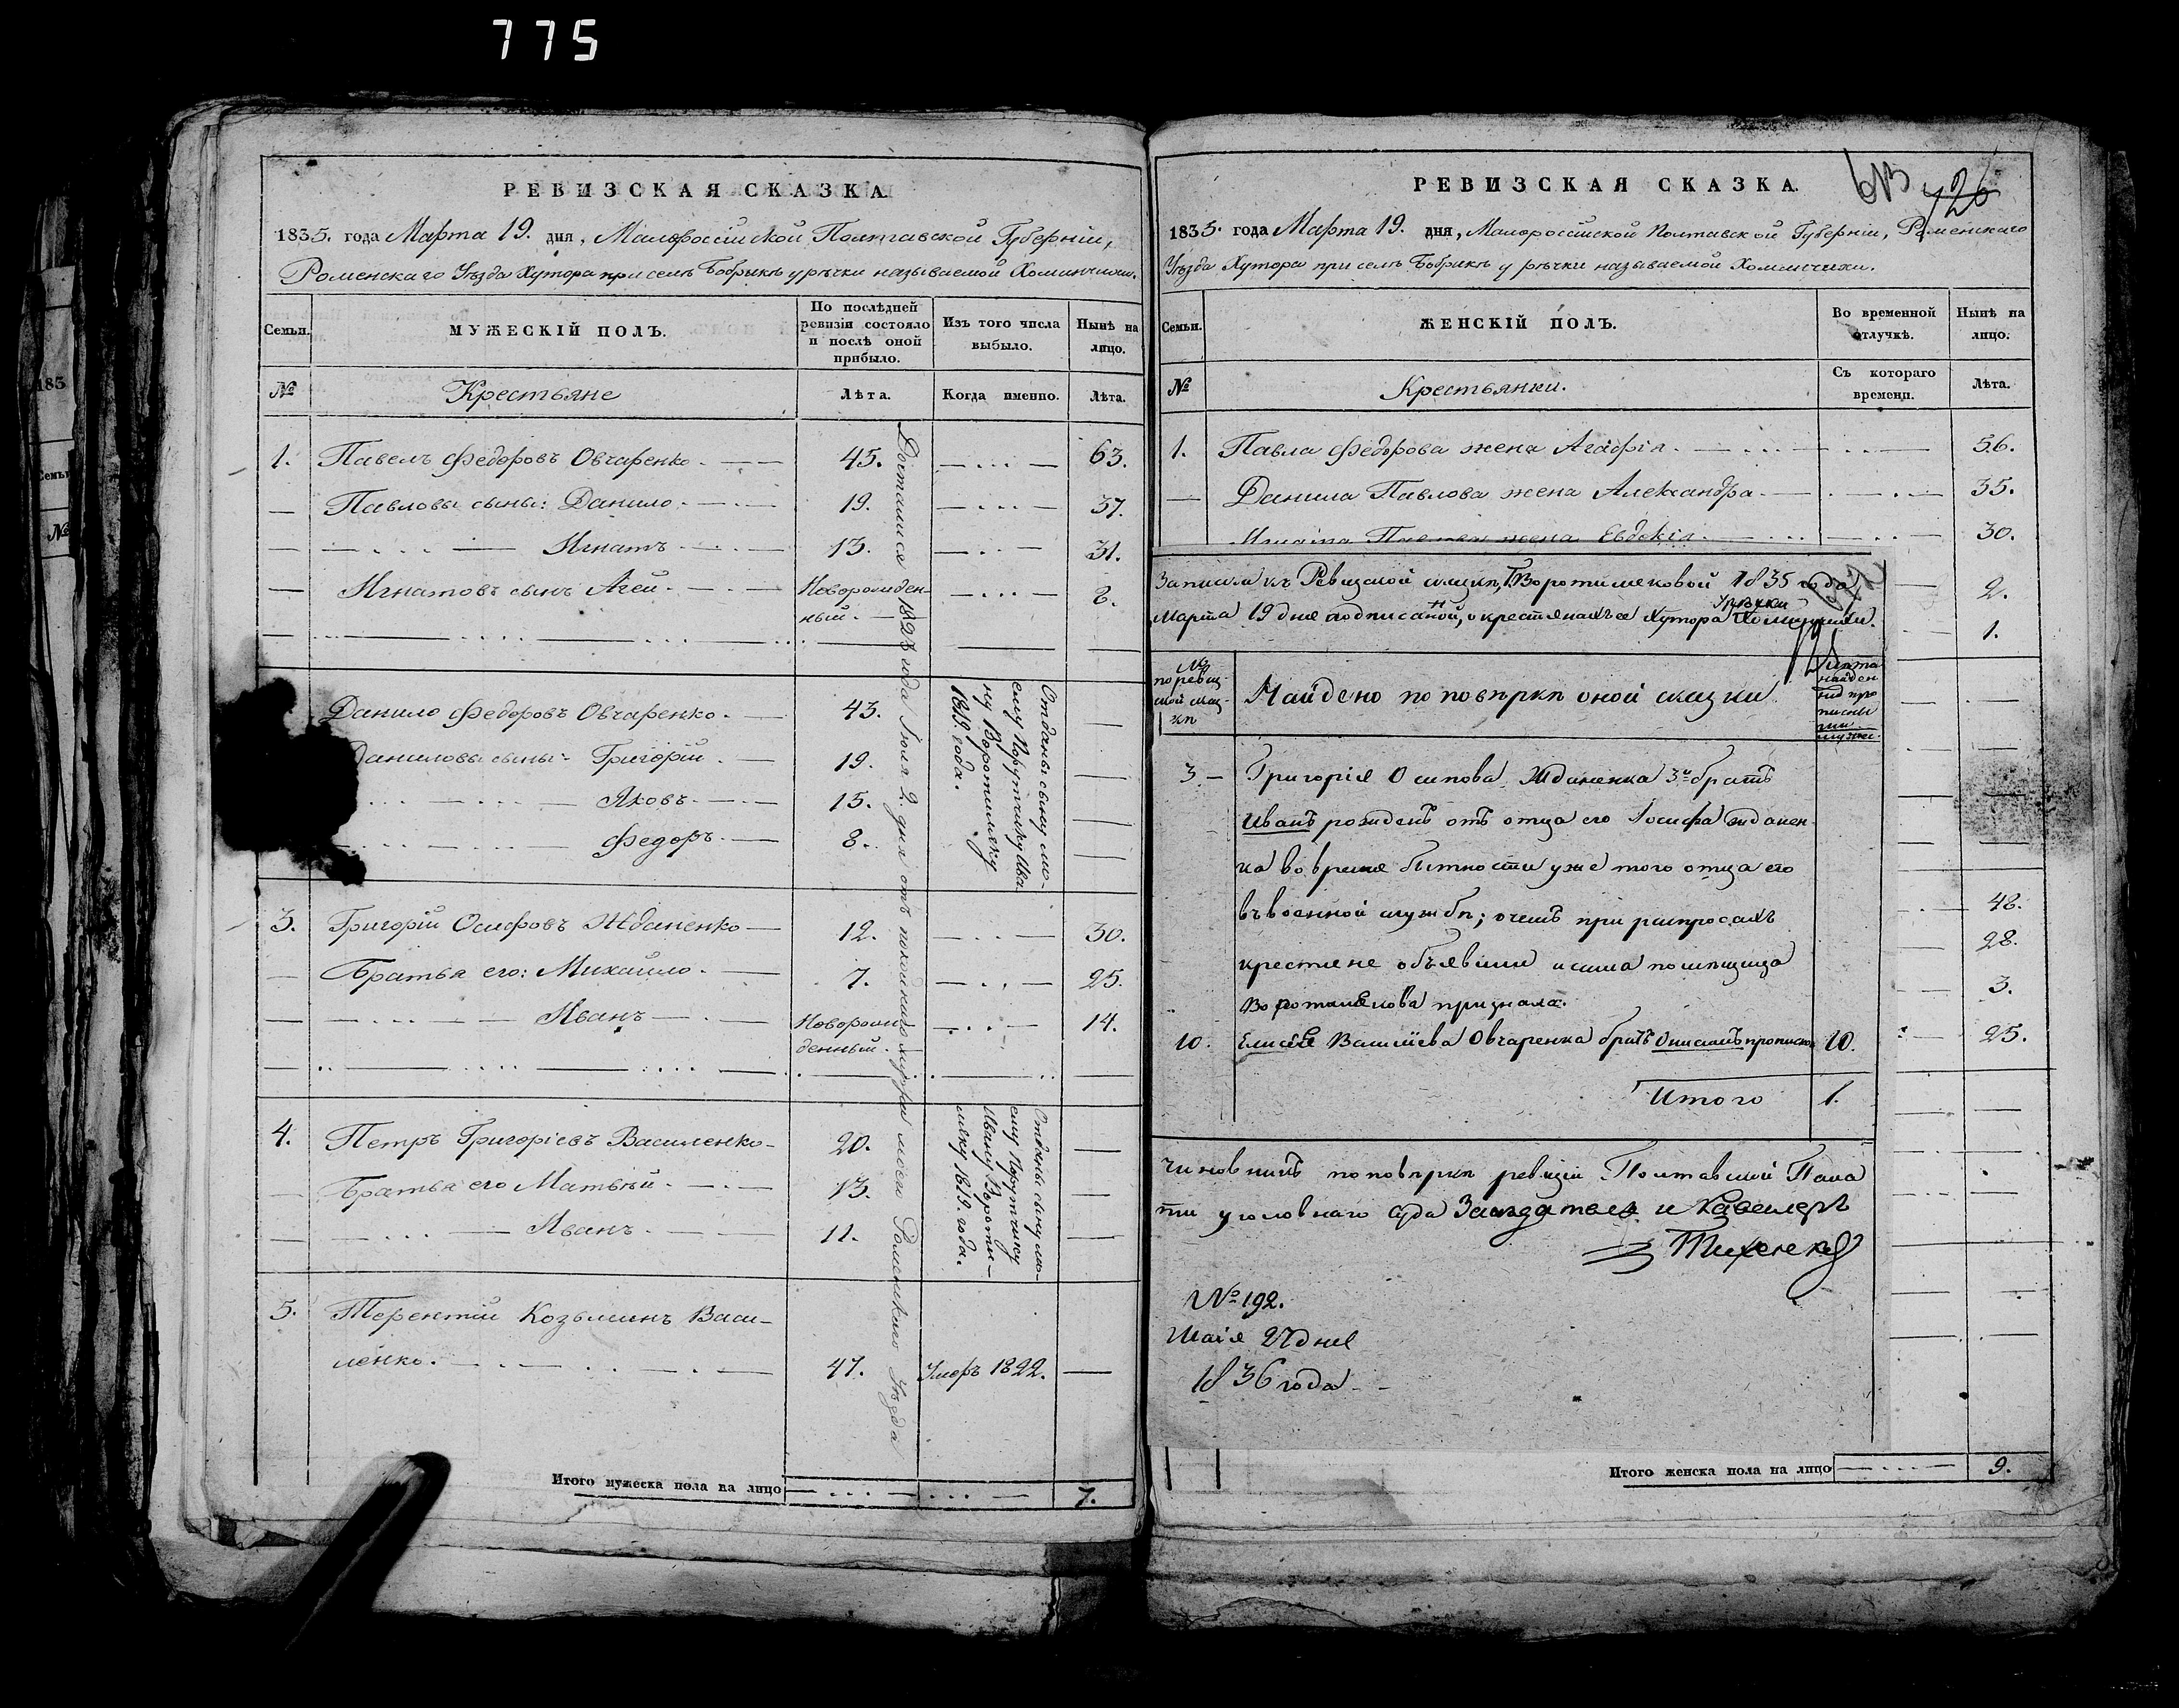 775
РЕВИЗСКАЯ СКАЗКА.
1835. года Марта 19. дня, Малороссійской Полтавской Губерніи,
Роменскаго Уѣзда Хутора при селѣ Бобрикѣ у рѣчки называемой Хоминчихи.
Семьи.
МУЖЕСКІЙ ПОЛЪ.
По послѣдней ревизіи состояло и послѣ оной прибыло.
Изъ того числа выбыло.
Нынѣ на лицо.
№
Крестьяне
Лѣта.
Когда именно.
Лѣта.
1. Павелъ Федоровъ Овчаренко. 45. 63.
Павловы сыны: Данило. 19. 37.
Игнатъ. 13. 31.
Игнатовъ сынъ Агей. Новорожден- 8.
ный.
Данило Федоровъ Овчаренко. 43.
Даниловы сыны: Григорій. 19.
Яковъ. 15.
Федоръ. 8.
Отданы сыну мо-
ему Порутчику Ива
ну Воротиляку
1819. года.
3. Григорій Осифовъ Жданенко 12. 30.
Братья его: Михайло. 7. 25.
Иванъ Новорож- 14.
денный.
4. Петръ Григоріевъ Василенко 20.
Братья его Матвѣй. 13.
Иванъ. 11.
Отданы сыну мо-
ему Порутчику
Ивану Вороти-
ляку 1819. года.
5. Терентій Козьминъ Васи-
ленко. 47. Умеръ 1822.
Достались 182 года Іюля 2. дня отъ покойнаго мужа моего Роменскаго Уѣзда
Итого мужеска пола на лицо 7.
РЕВИЗСКАЯ СКАЗКА.
426
1835. года Марта 19. дня, Малороссійской Полтавской Губерніи, Роменскаго
Уѣзда Хутора при селѣ Бобрикѣ у рѣчки называемой Хоминчихи.
Семьи.
ЖЕНСКІЙ ПОЛЪ.
Во временной отлучкѣ.
Нынѣ на лицо.
№
Крестьянки.
Съ котораго времени.
Лѣта.
1. Павла Федорова жена Агафія. 56.
Данила Павлова жена Александра. 35.
Игната Павлова жена Евдокія. 30.
2.
1.
48.
28.
3.
25.
Марта 19 дня подписаной, о крестянахъ ея Хутора
У рѣчки
Найдено по повѣркѣ оной сказки
3 Григорія Осипова Жданенка 3й братъ
Иванъ рожденъ отъ отца его Іосифа Жданен
ка во время бытности уже того отца его
въ военной службѣ; о чемъ при распросахъ
крестяне объявили и сама помѣщица
признала.
10. Елисея Васильева Овчаренка братъ 10.
Итого 1.
Чиновникъ по повѣркѣ ревизіи Полтавской Пала
ты уголовнаго суда Засѣдатель и Кавалеръ
№ 192.
Маія 27 дня
1836 года
Итого женска пола на лицо 9.
183
Семьи
№